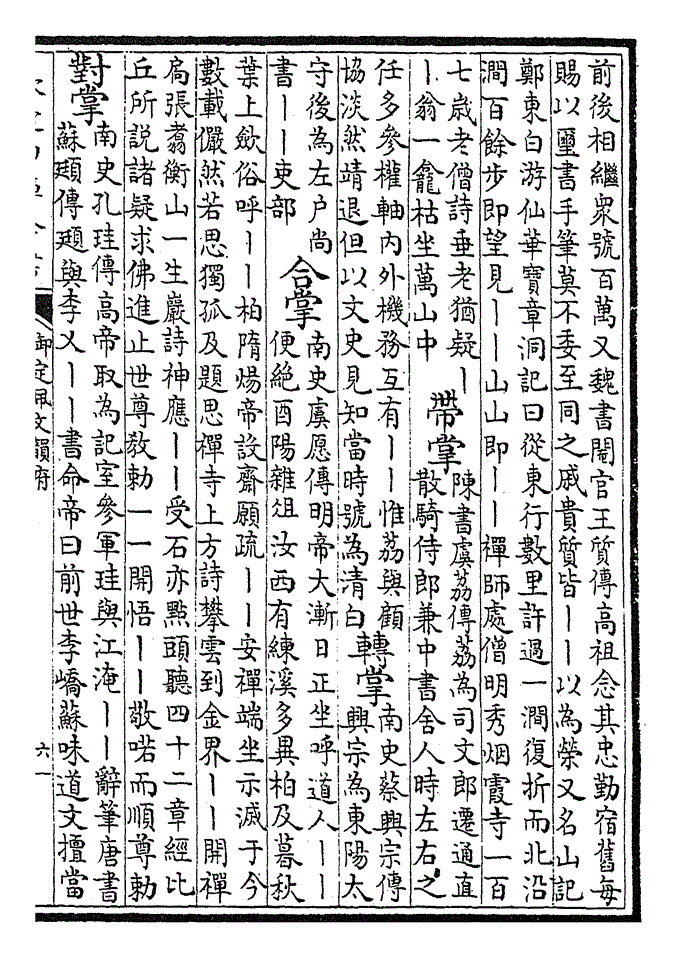 前後相繼眾號百萬又魏書閹官王質傳高祖念其忠勤宿舊每
賜以璽書手筆莫不委至同之戚貴質皆丨丨以為榮又名山記
鄭東白游仙華寶章洞記曰從東行數里許過一澗復折而北沿
澗百餘步即望見丨丨山山即丨丨禪師處僧明秀烟霞寺一百
七歲老僧詩垂老猶疑丨
丨翁一龕枯坐萬山中
帶掌
陳書虞荔傳荔為司文郎遷通直
散騎侍郎兼中書舍人時左右之
任多參權軸內外機務互有丨丨惟荔與顧
協淡然靖退但以文史見知當時號為清白
轉掌
南史蔡興宗傳
興宗為東陽太
守後為左戶尚
書丨丨吏部
合掌
南史虞愿傳明帝大漸日正坐呼道人丨丨
便絕酉陽雜俎汝西有練溪多異柏及暮秋
葉上歛俗呼丨丨柏隋煬帝設齋願疏丨丨安禪端坐示滅于今
數載儼然若思獨孤及題思禪寺上方詩攀雲到金界丨丨開禪
扃張翥衡山一生巖詩神應丨丨受石亦點頭聽四十二章經比
丘所說諸疑求佛進止世尊教勅一一開悟丨丨敬喏而順尊勅
對掌
南史孔珪傳高帝取為記室參軍珪與江淹丨丨辭筆唐書
蘇頲傳頲與李乂丨丨書命帝曰前世李嶠蘇味道文擅當
御定佩文韻府
六一